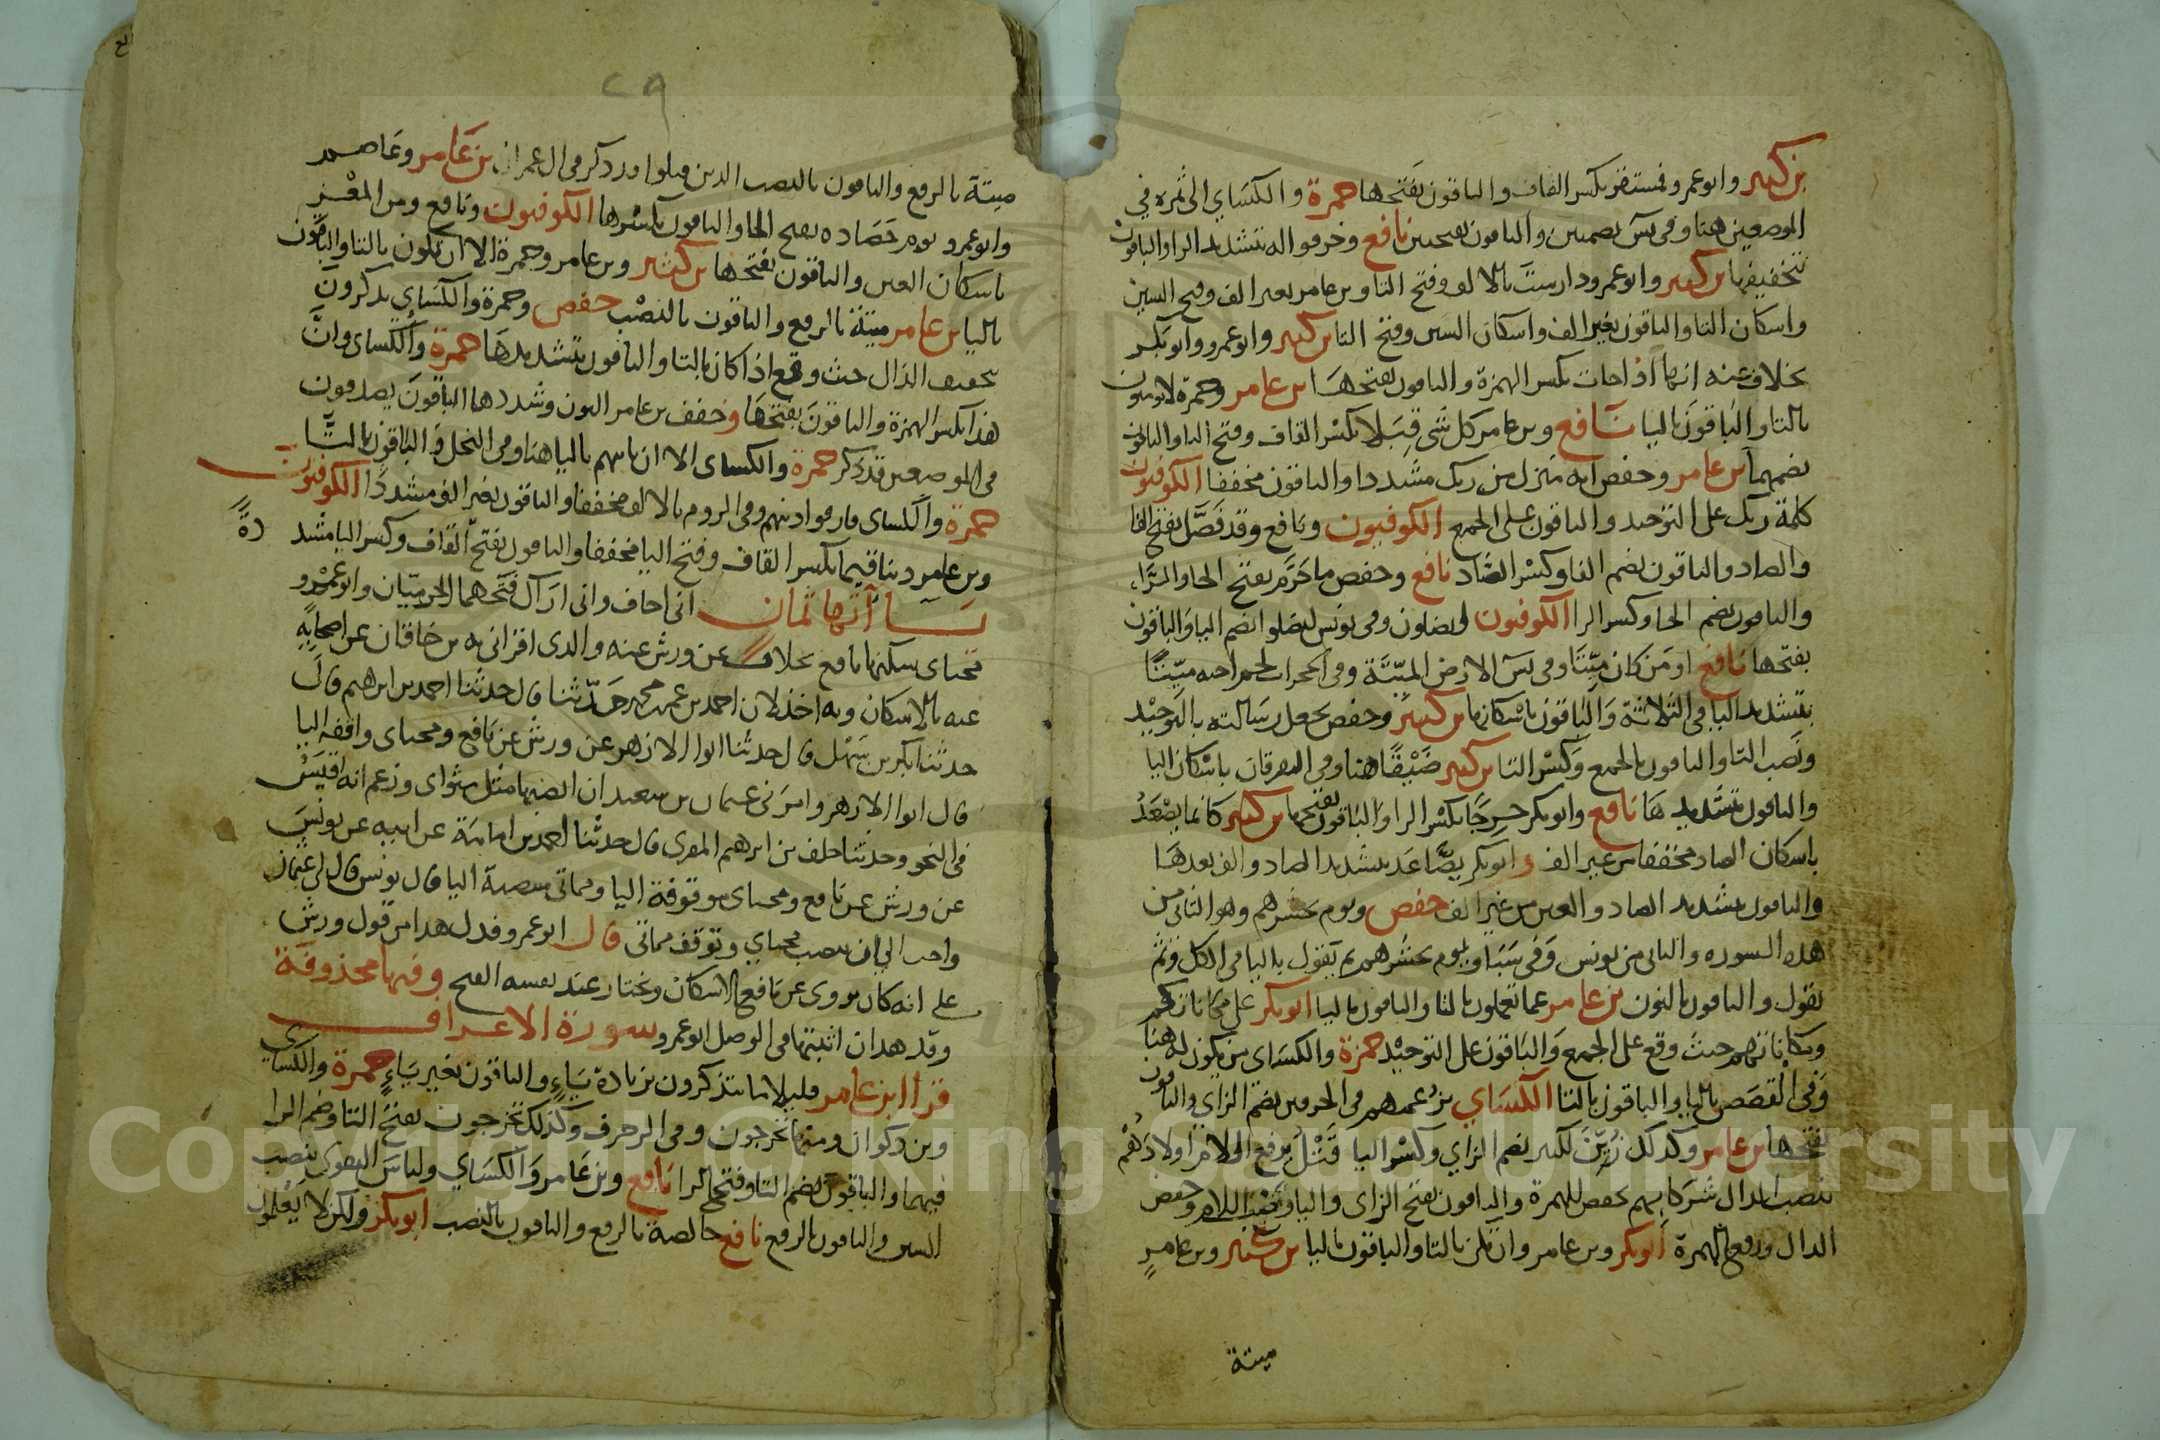 بن كثير وابو عمرو فمستقر بكسر القاف والباقون بفتحها حمزة والكساي الى ثمره في
الموضعين هنا وفى يس بضمتين والباقون بفتحتين نافع وخرقوا له بتشديد الرا والباقون
بتخفيفها بن كثير وابو عمرو دارست بالالف وفتح التا وبن عامر بغير الف وفتح السين
واسكان التا والباقون بغير الف واسكان السين وفتح التا بن كثير وابو عمرو وابو بكر
بخلاف عنه انها اذا جات بكسر الهمزة والباقون بفتحها بن عامر وحمزة لا تومنون
بالتا والباقون باليا نافع وبن عامر كل شى قبلا بكسر القاف وفتح البا والباقون
بضمهما بن عامر وحفص انه منزل من ربك مشددا والباقون مخففا الكوفيون
كلمة ربك على التوحيد والباقون على الجمع الكوفيون ونافع وقد فصل بفتح الفا
والصاد والباقون بضم الفا وكسر الصاد نافع وحفص ما حرم بفتح الحا والرا
والباقون بضم الحا وكسر الرا الكوفيون ليضلون وفى يونس ليضلوا بضم اليا والباقون
بفتحها نافع او من كان ميتا وفى يس الارض الميتة وفى الحجرات لحم اخيه ميتا
بتشديد اليا فى الثلاثة والباقون باسكانها بن كثير وحفص يجعل رسالته بالتوحيد
ونصب التا والباقون بالجمع وكسر التا بن كثير ضيقا هنا وفى الفرقان باسكان اليا
والباقون بتشديدها نافع وابو بكر حرجا بكسر الرا والباقون بفتحها بن كثير كانما يصعد
باسكان الصاد مخففا من غير الف وابو بكر يصاعد بتشديد الصاد والف بعدها
والباقون بتشديد الصاد والعين من غير الف حفص ويوم يحشرهم وهو الثانى من
هذه السوره والثانى من يونس وفى سبا ويوم يحشرهم ثم يقول باليا فى الكل وثم
نقول والباقون بالنون بن عامر عما تعملون بالتا والباقون باليا ابو بكر على مكاناتكم
ومكاناتهم حيث وقع على الجمع والباقون على التوحيد حمزة والكساي من يكون له هنا
وفى القصص باليا والباقون بالتا الكساي بزعمهم فى الحرفين بضم الزاي والباقون
بفتحها بن عامر وكذلك زين لكثير بضم الزاي وكسر اليا قتل برفع اللام اولادهم
بنصب الدال شركايهم بخفض الهمزة والباقون بفتح الزاى واليا ونصب اللام وخفض
الدال ورفع الهمزة ابو بكر وبن عامر وان تكن بالتا والباقون باليا بن كثير وبن عامر
ميتة
٢٩
ميتة بالرفع والباقون بالنصب الذين قتلوا قد ذكر فى ال عمران بن عامر وعاصم
وابو عمرو يوم حصاده بفتح الحا والباقون بكسرها الكوفيون ونافع ومن المعز
باسكان العين والباقون بفتحها بن كثير وبن عامر وحمزة الا ان تكون بالتا والباقون
باليا بن عامر ميتة بالرفع والباقون بالنصب حفص وحمزة والكساي تذكرون
بتخفيف الذال حيث وقع اذا كان بالتا والباقون بتشديدها حمزة والكساى وان
هذا بكسر الهمزة والباقون بفتحها وخفف بن عامر النون وشددها الباقون يصدفون
فى الموضعين قد ذكر حمزة والكساى الا ان ياتيهم باليا هنا وفى النحل والباقون بالتا
حمزة والكساى فارقوا دينهم وفى الروم بالالف مخففا والباقون بغير الف مشددا الكوفيون
وبن عامر دينا قيما بكسر القاف وفتح اليا مخففا والباقون بفتح القاف وكسر اليا مشددة
ياآتها ثمان انى اخاف وانى اراك فتحهما الحرميان وابو عمرو
محياى سكنها نافع بخلاف عن ورش عنه والذى اقرانى به بن خاقان عن اصحابه
عنه بالاسكان وبه اخذ لان احمد بن عمر بن محمد حدثنا قال حدثنا احمد بن ابرهيم قال
حدثنا بكر بن سهل قال حدثنا ابو الازهر عن ورش عن نافع ومحياى واقفة اليا
قال ابو الازهر وامرنى عثمان بن سعيد ان انصبها مثل مثواى وزعم انه اقيس
فى النحو وحدثنا خلف بن ابرهيم المقرى قال حدثنا احمد بن اسامة عن ابيه عن يونس
عن ورش عن نافع ومحياى موقوفة اليا ومماتى منتصبة اليا قال يونس قال لى عثمان
واحب الى ان تنصب محياي وتوقف مماتى قال ابو عمرو فدل هذا من قول ورش
على انه كان يروى عن نافع الاسكان ويختار عند نفسه الفتح وفيها محذوفة
وقد هدان اثبتها فى الوصل ابو عمرو سورة الاعراف
قرا ابن عامر قليلا ما يتذكرون بزيادة ياء والباقون بغير ياء حمزة والكساى
وبن ذكوان ومنها تخرجون وفى الزخرف وكذلك تخرجون بفتح التا وضم الرا
فيهما والباقون بضم التا وفتح الرا نافع وبن عامر والكساي ولباس التقوى بنصب
السين والباقون بالرفع نافع خالصة بالرفع والباقون بالنصب ابو بكر ولكن لا يعلمون
Copyright © King Saud University